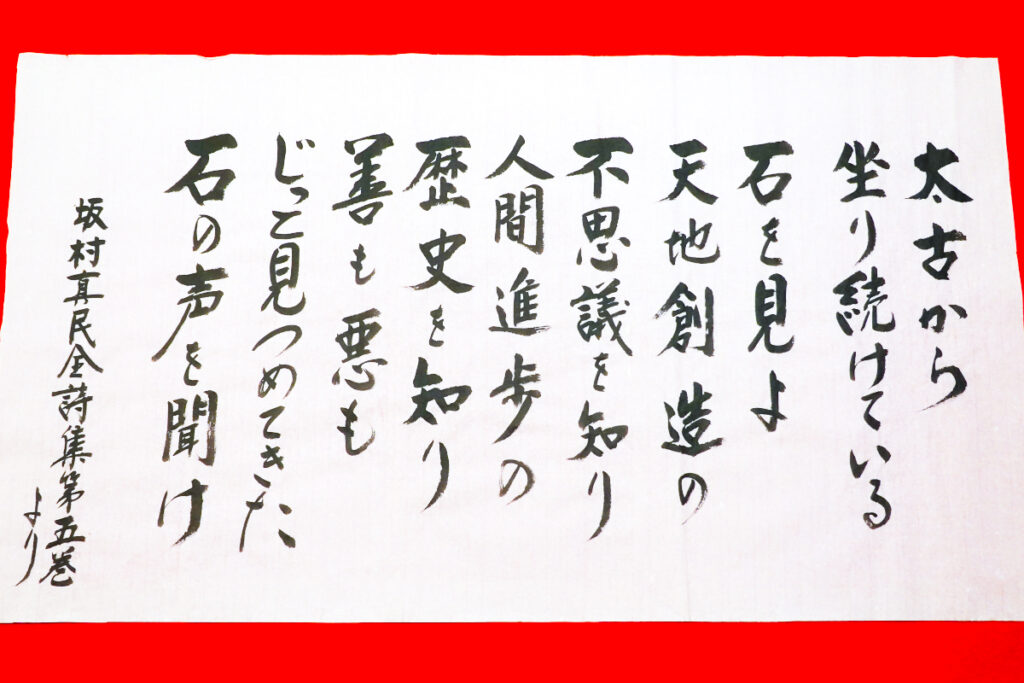 太古から
坐り続けている
石を見よ
天地創造の
不思議を知り
人間進歩の
歴史を知り
善も悪も
じっと見つめてきた
石の声を聞け
坂村真民全詩集第五巻
より